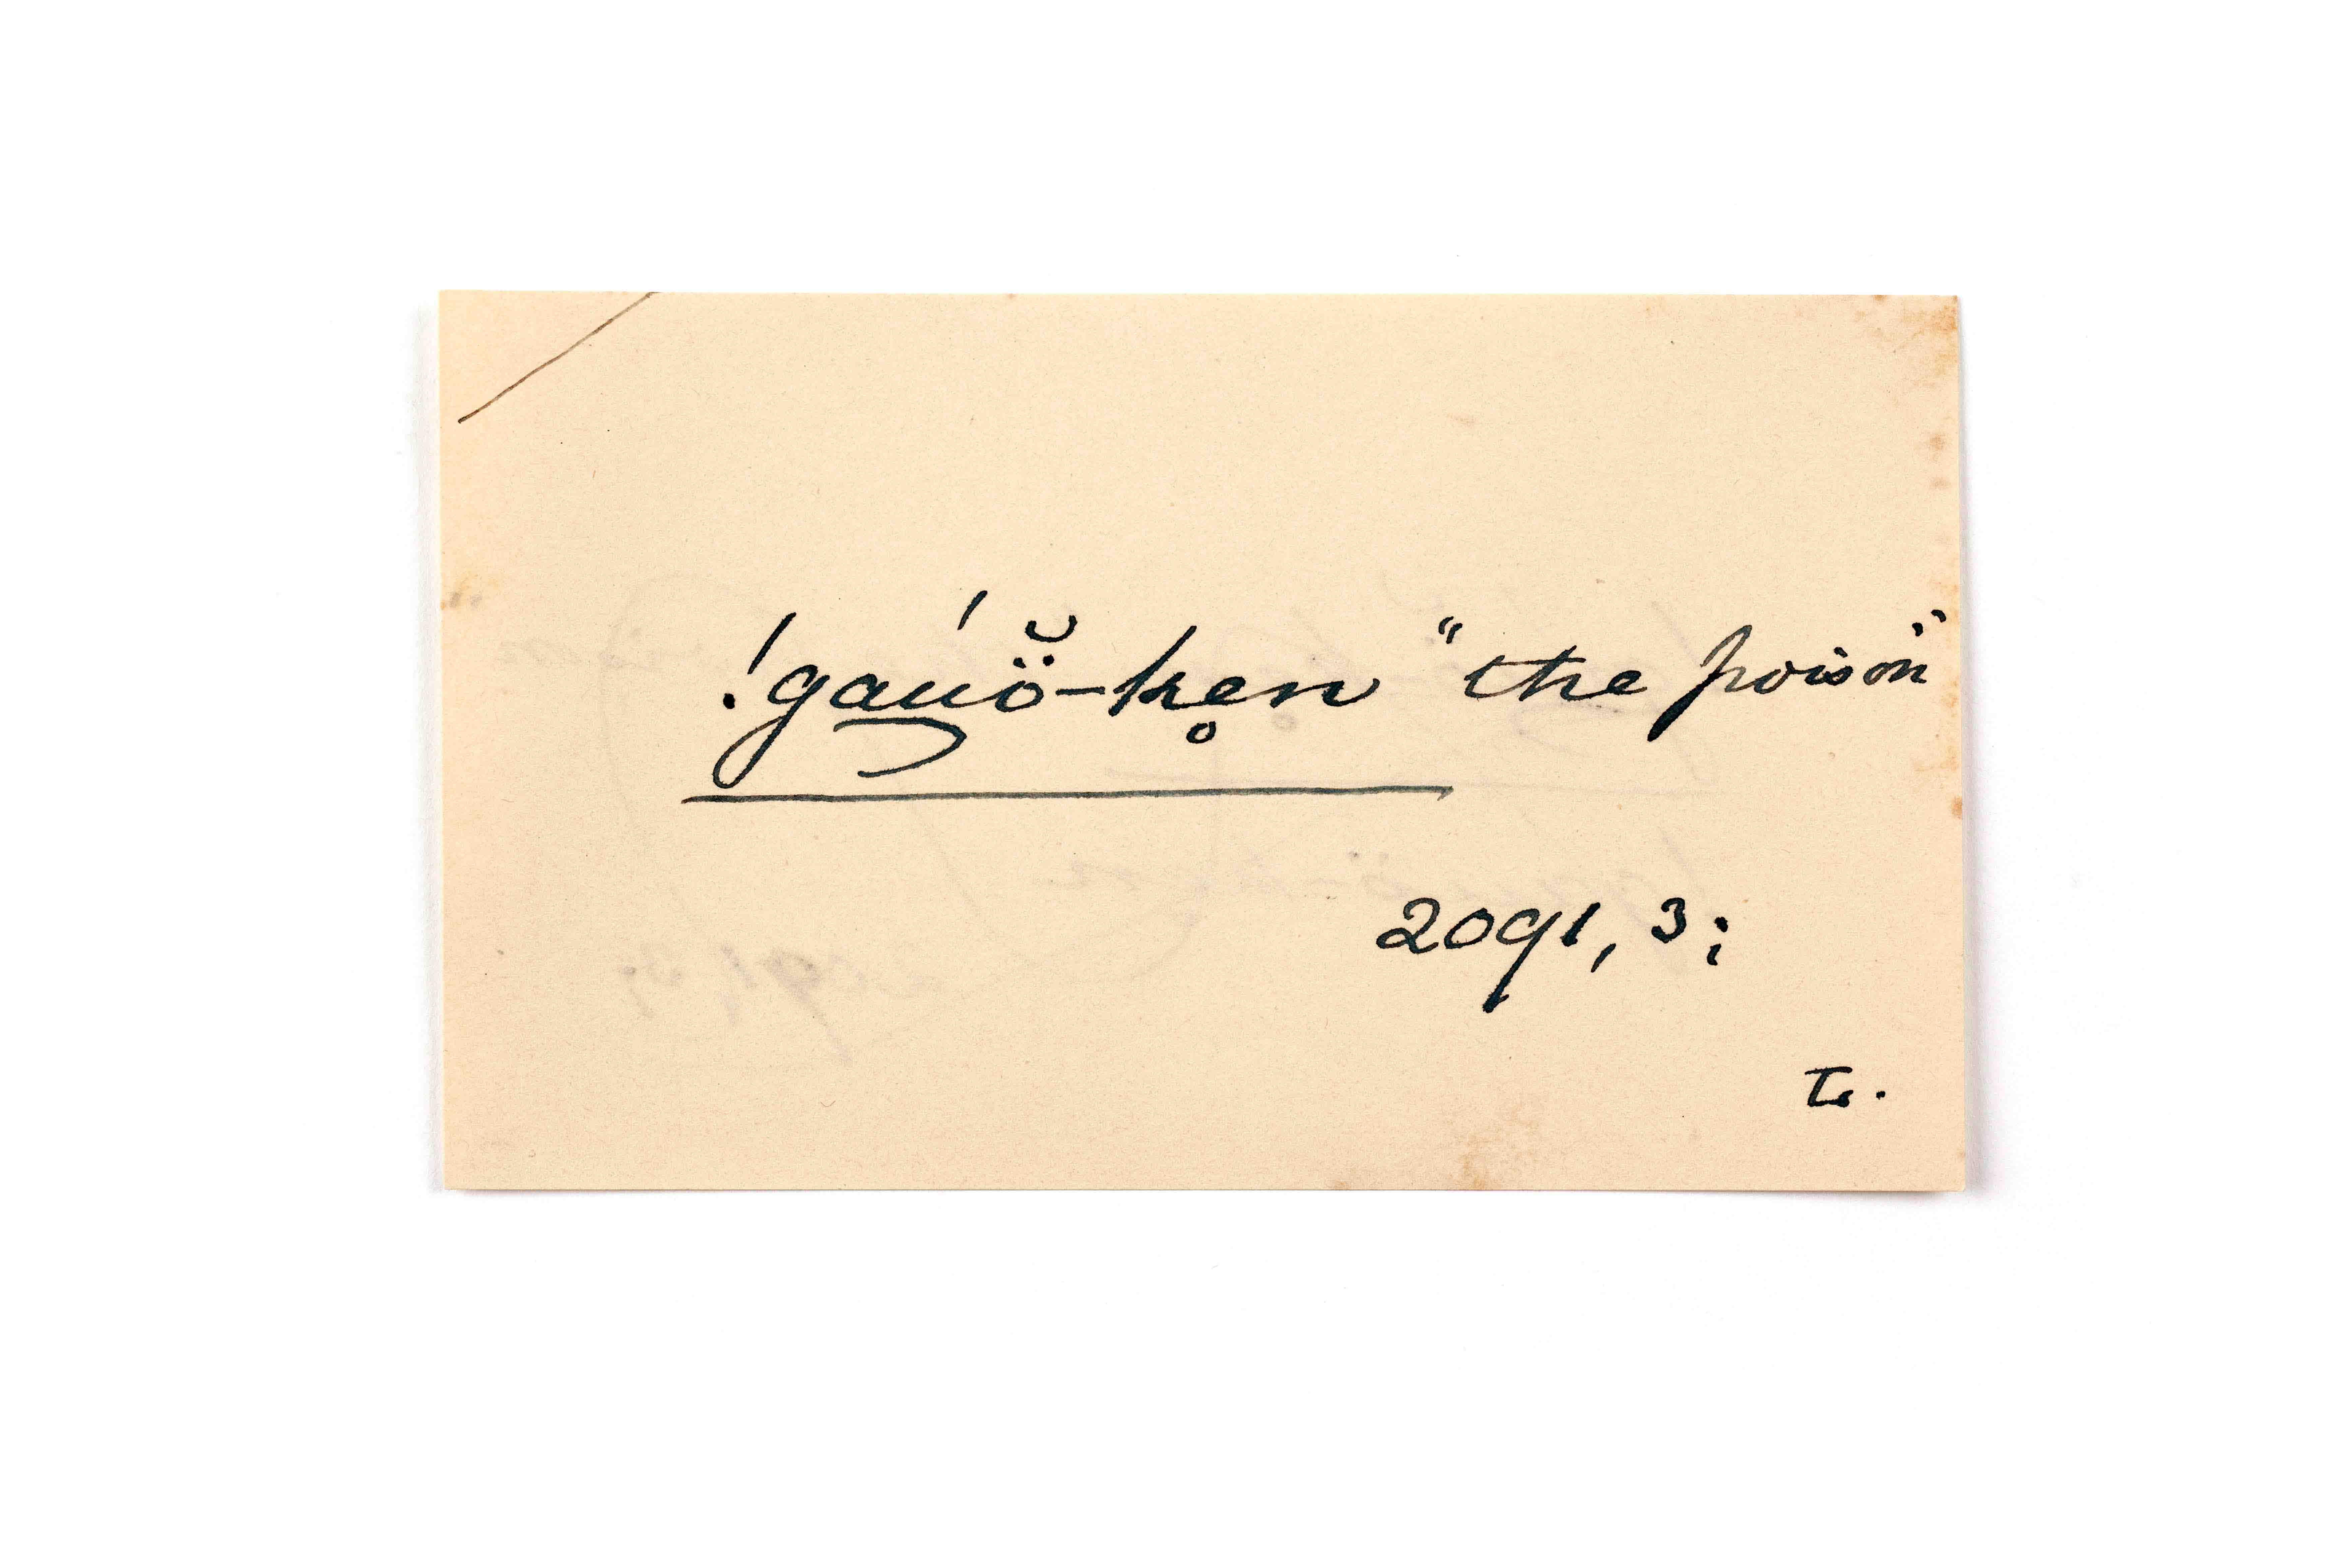 !gau̗ö̆-ke̥n "the poison"
2091, 3;
T.